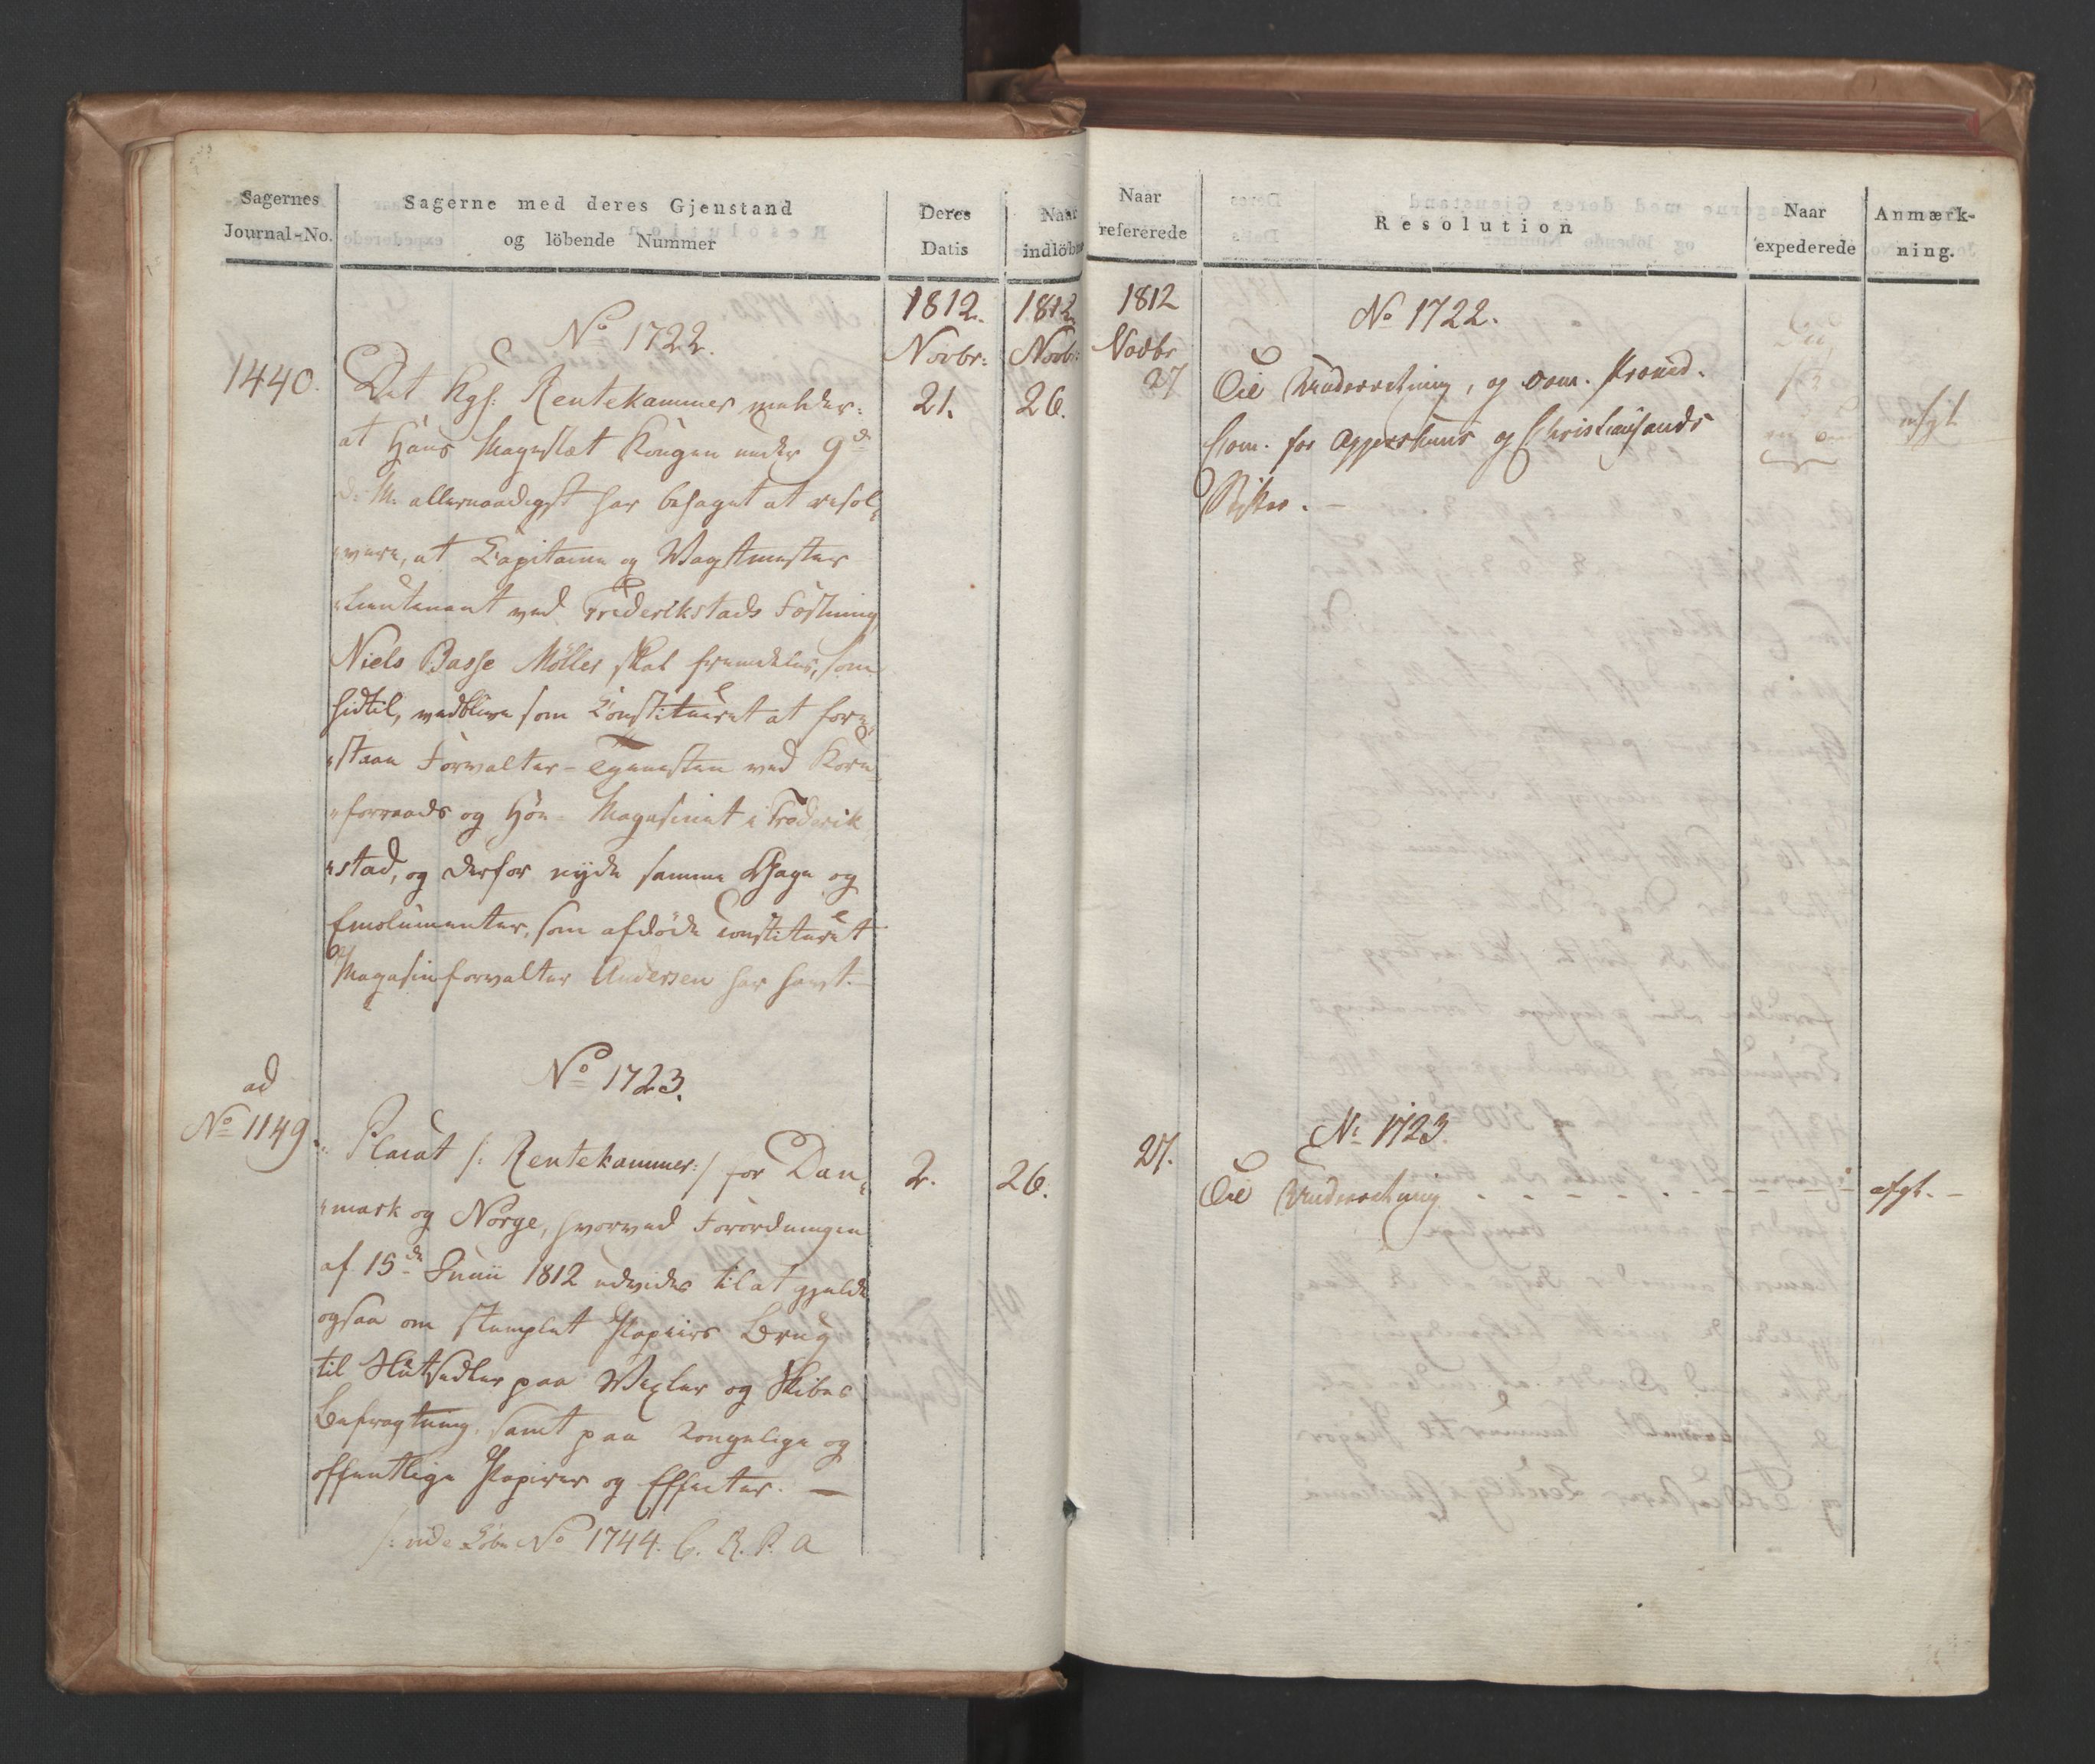 Sagernes
Journal-No.
Sagerne med deres Gjenstand
og löbende Nummer
Deres
Datis
Naar
indlöbne
1812.
Novbr:
1812
Novbr:
No 1722.
1440.
Det Kgl: Rentekammer melder:
21.
26.
at Hans Mayestæt Kongen under 9de
d: M: allernaadigst har behaget at resol-
vere, at Capitaine og Wagtmester
Lieutenant ved Frederikstads Fæstning
Niels Basse Möller skal fremdeles, som
hidtil, vedblive som Constitueret at fore-
staae Forvalter-Tjenesten ved Korn-
forraads og Höe-Magasinet i Frederik-
stad, og derfor nyde samme Gage og
Emolumenter, som afdöde constitueret
Magasinforvalter Andersen har havt.
No 1723.
ad
No 1149.
Placat /: Rentekammer:/ for Dan-
2.
26.
mark og Norge, hvorved Forordningen
af 15de Junii 1812 udvides til at gjelde
ogsaa om stemplet Papiirs Brug
til Slutsedler paa Wexler og Skibes
Befragtning, samt paa Kongelige og
offentlige Papirer og Effecter. —
/: vide Löbe No 1744. C. R. P. A
Naar
refererede
Resolution
Naar
expederede
Anmærk-
ning.
1812
Novbr
27
No 1722.
Til Underretning, og com. Proviid.
Com. for Aggershuus og Christiansands
Stifter. —
afgt
27.
No 1723.
Til Underretning
afgt. —